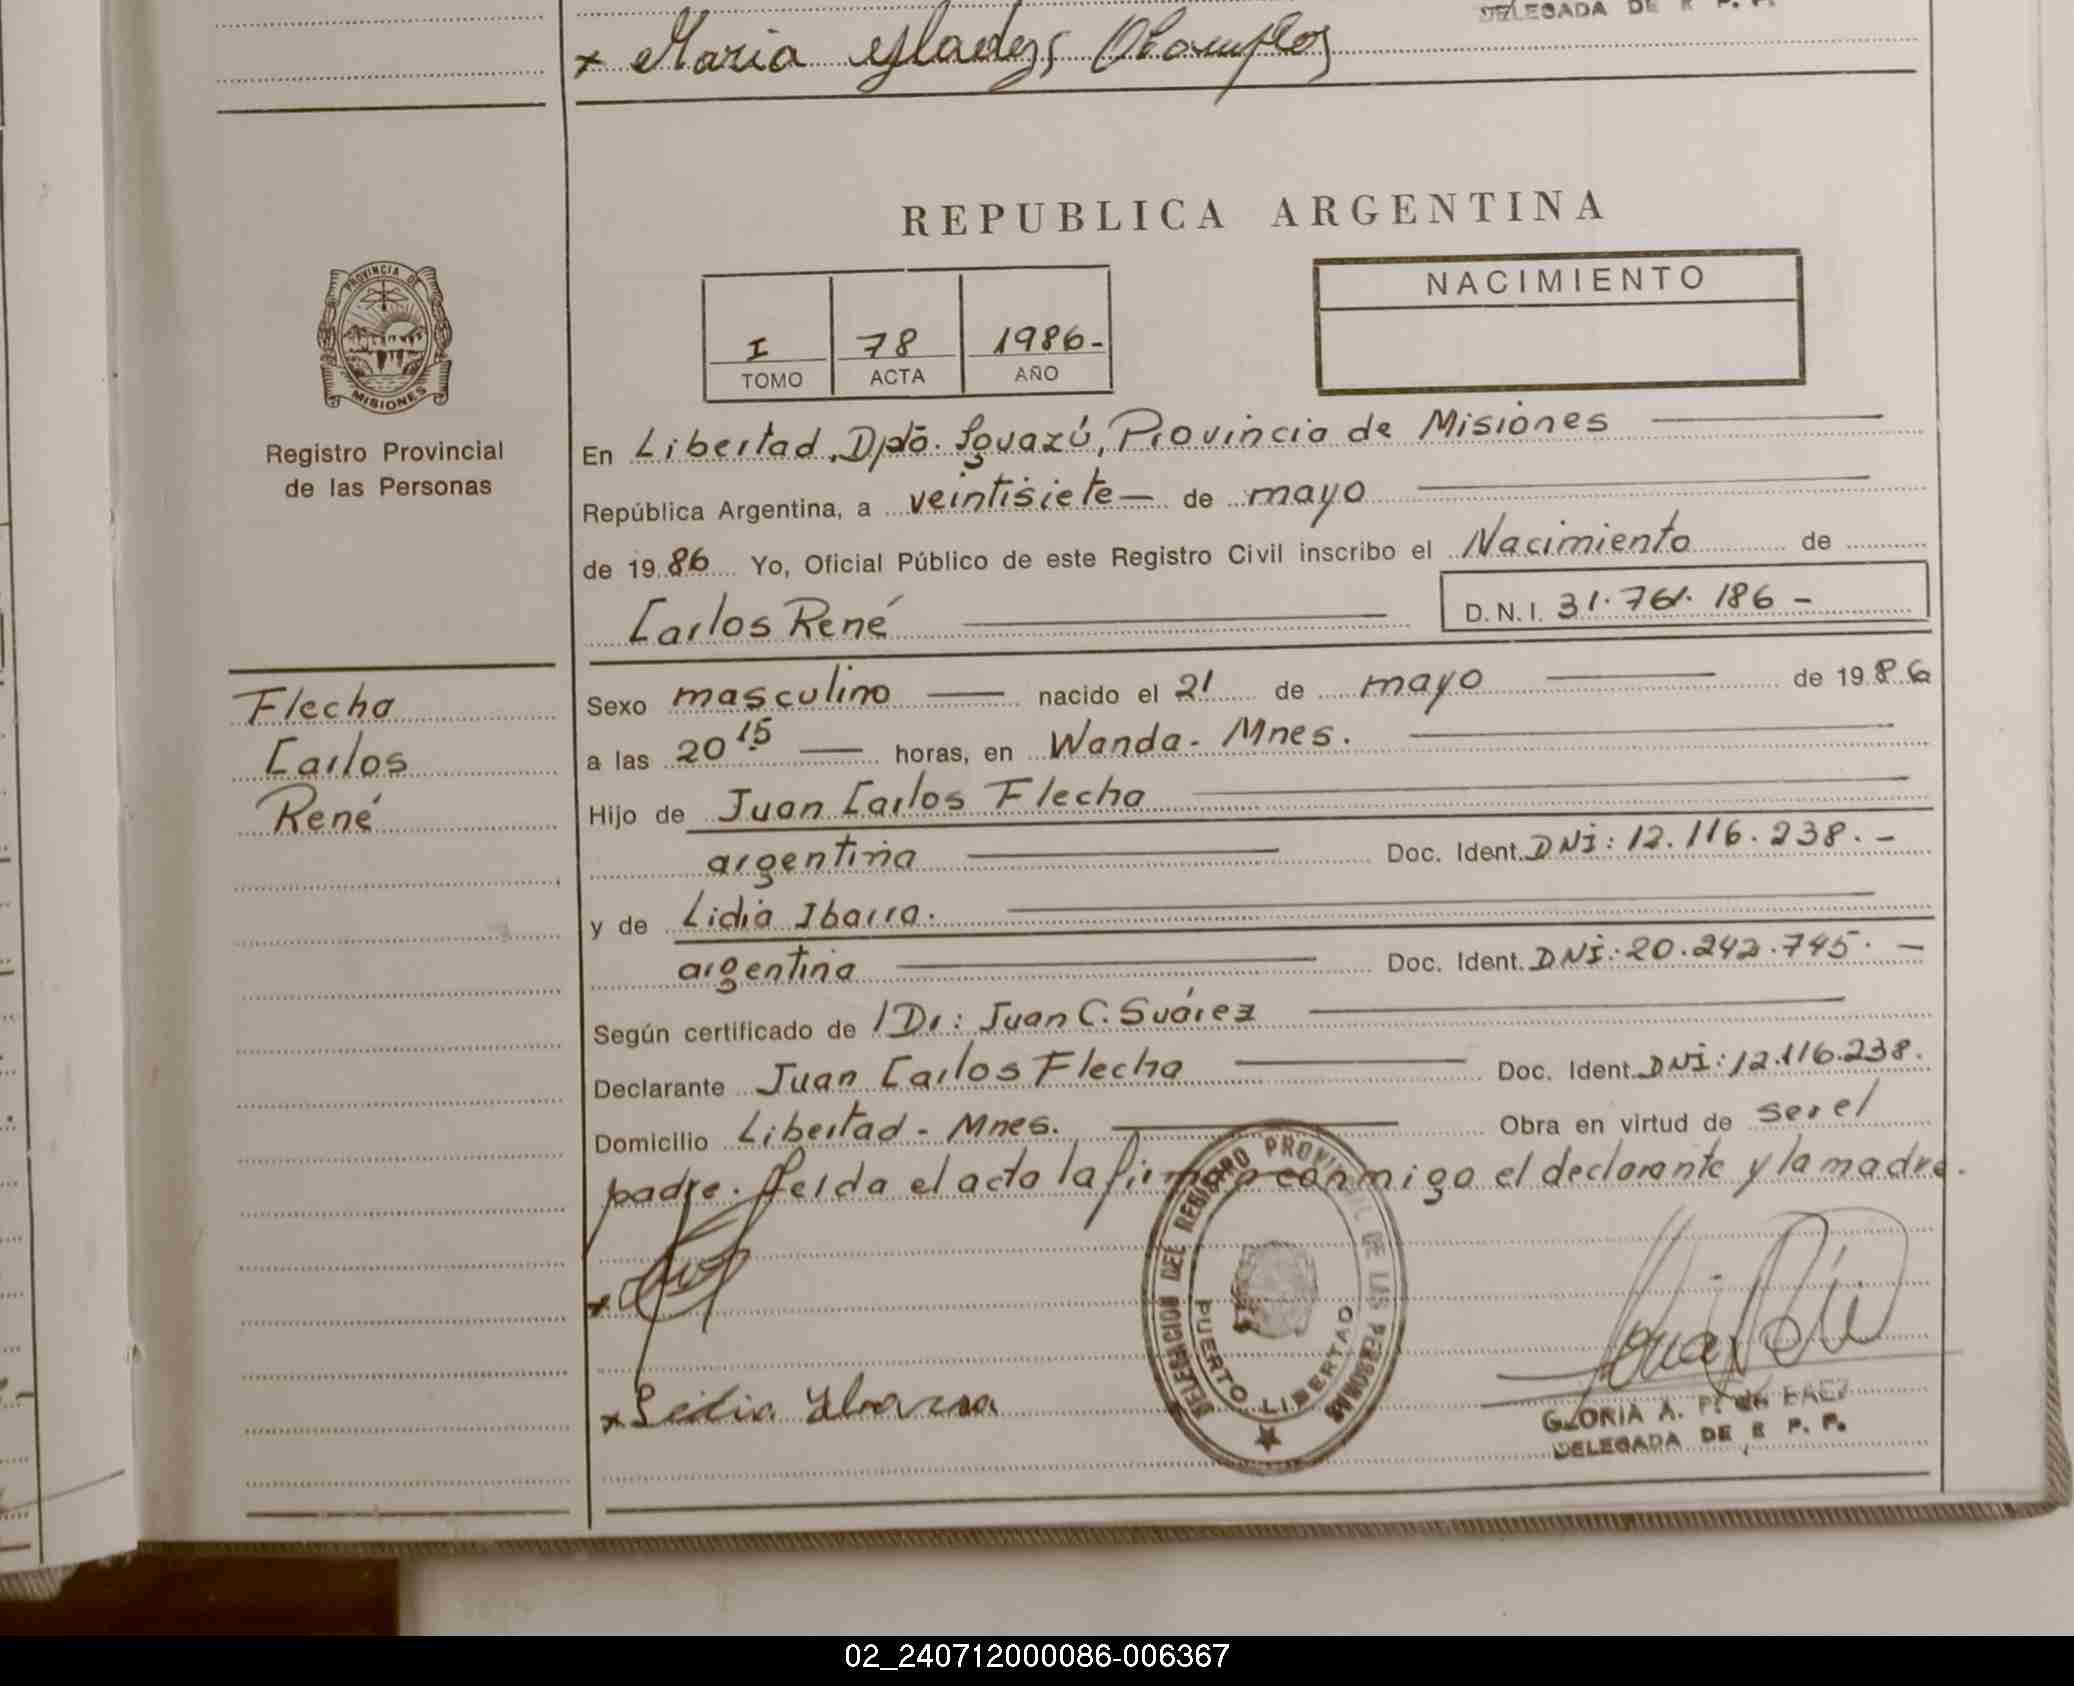 DELEGADA DE R P. P.
x Maria Gladys Ocampos
REPUBLICA ARGENTINA
PROVINCIA DE
MISIONES
Registro Provincial
de las Personas
NACIMIENTO
I 78 1986-
TOMO ACTA AÑO
En Libertad, Dpto. Iguazú, Provincia de Misiones
República Argentina, a veintisiete — de mayo
de 1986 Yo, Oficial Público de este Registro Civil inscribo el Nacimiento de
Carlos René D.N.I. 31.761.186 -
Flecha
Carlos
René
Sexo masculino — nacido el 21 de mayo — de 1986
a las 20 15 — horas, en Wanda - Mnes.
Hijo de Juan Carlos Flecha
argentina — Doc. Ident. DNI: 12.116.238.-
y de Lidia Ibarra.
argentina — Doc. Ident. DNI: 20.242.745. —
Según certificado de Dr: Juan C. Suárez
Declarante Juan Carlos Flecha — Doc. Ident. DNI: 12.116.238.
Domicilio Libertad - Mnes. — Obra en virtud de ser el
padre. Leída el acta la firman conmigo el declarante y la madre.
x
DELEGACION DEL REGISTRO PROVINCIAL DE LAS PERSONAS
PUERTO LIBERTAD
x Lidia Ybarra
GLORIA A. P. DE BAEZ
DELEGADA DE R P. P.
02_240712000086-006367